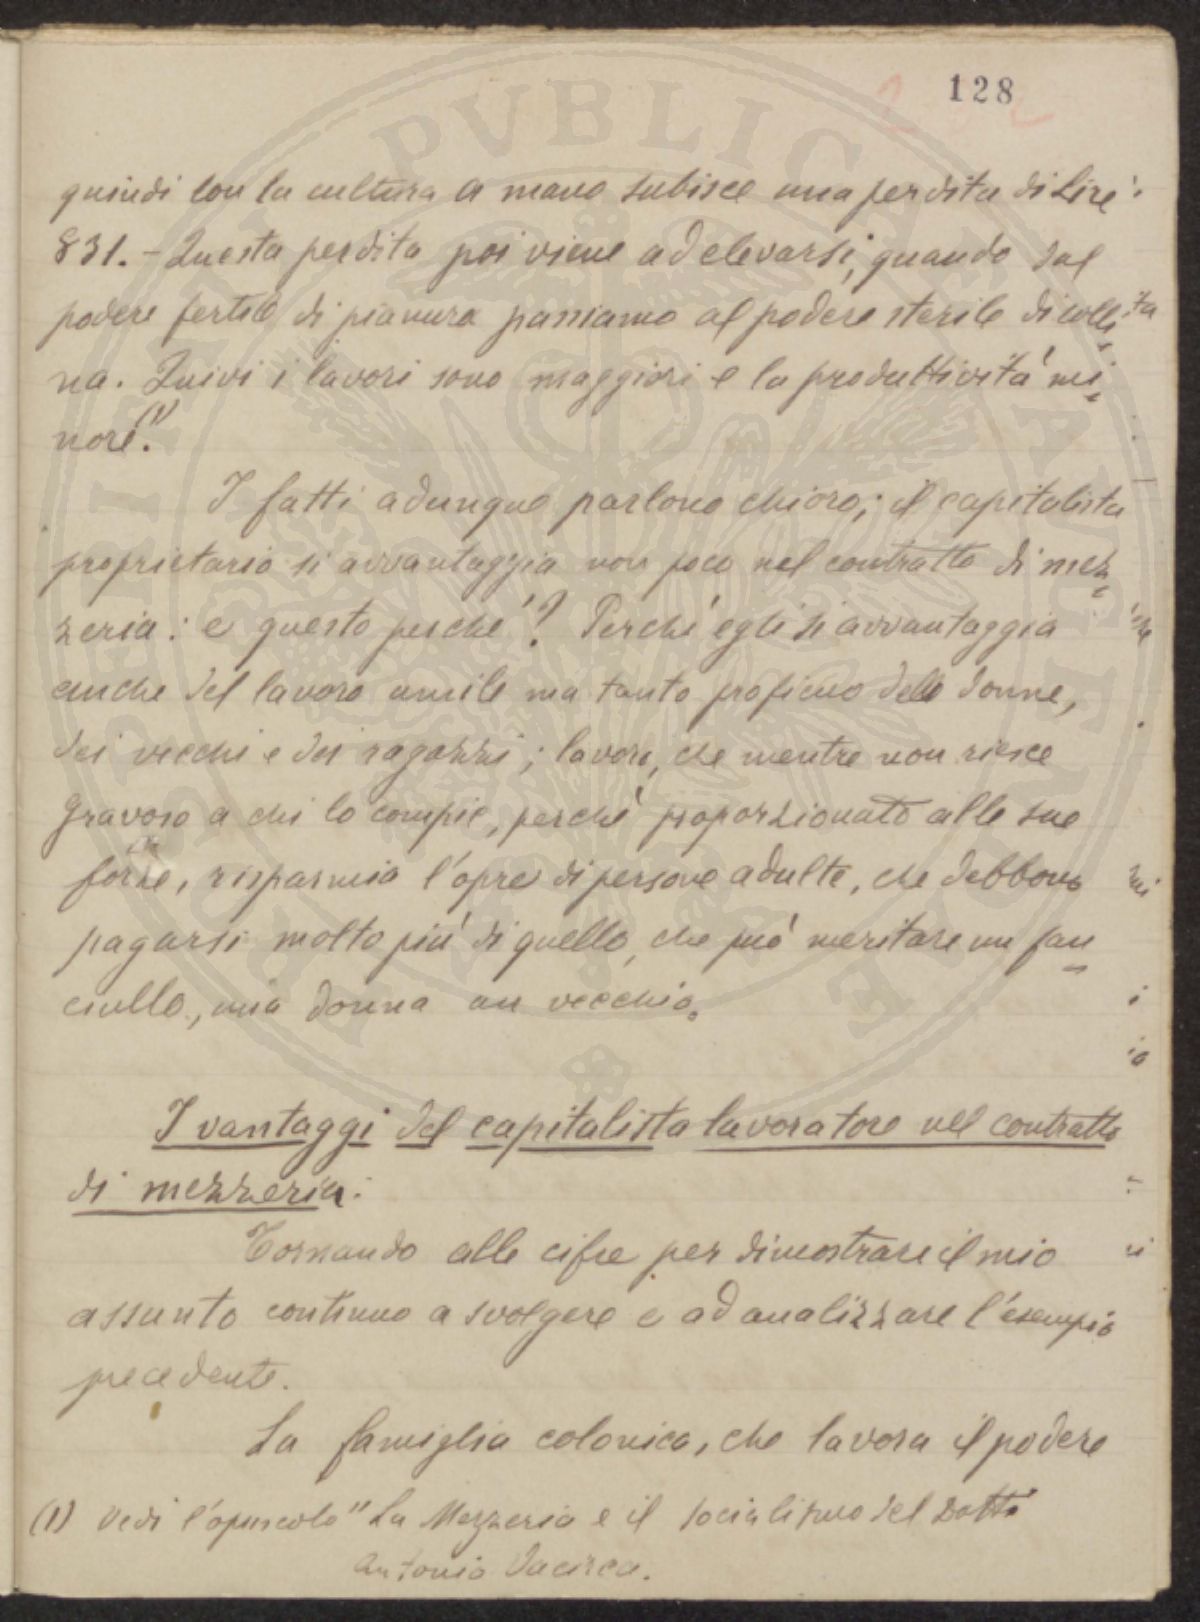 128
quindi con la cultura a mano subisce una perdita di Lire:
831. - Questa perdita poi viene ad elevarsi, quando dal
podere fertile di pianura passiamo al podere sterile di colli-
na. Quivi i lavori sono maggiori e la produttività mi-
nore.(1)
I fatti adunque parlono chioro; il capitalista
proprietario si avvantaggia non poco nel contratto di mez-
zeria: e questo perchè? Perchè egli si avvantaggia
anche del lavoro umile ma tanto proficuo delle donne,
dei vecchi e dei ragazzi; lavoro, che mentre non riesce
gravoso a chi lo compie, perchè proporzionato alle sue
forze, risparmia l'opre di persone adulte, che debbono
pagarsi molto più di quello, che può meritare un fan-
ciullo, una donna un vecchio.
I vantaggi del capitalista lavoratore nel contratto
di mezzeria:
Tornando alle cifre per dimostrare il mio
assunto continuo a svolgere e ad analizzare l'esempio
precedente.
La famiglia colonica, che lavora il podere
(1) Vedi l'opuscolo "La Mezzeria e il socialismo del Dott.
Antonio